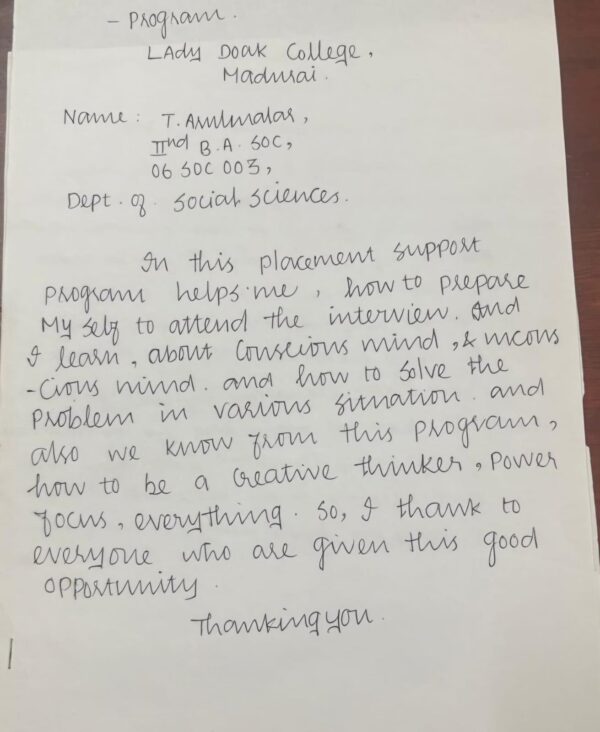 - Program.
Lady Doak College,
Madurai.
Name: T. Arulmalar,
IInd B.A. SOC,
06 SOC 003,
Dept. of Social Sciences.
In this placement support
program helps me, how to prepare
My self to attend the interview. And
I learn, about Conscious mind, & uncons
-cious mind. and how to solve the
problem in various situation. and
also we know from this program,
how to be a creative thinker, power
focus, everything. So, I thank to
everyone who are given this good
opportunity.
Thanking you.